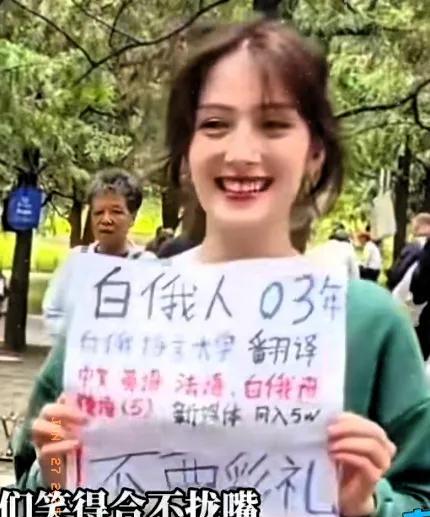 白俄人 03年
白俄语言大学 翻译
中文 英语 法语、白俄语
俄语(5) 新媒体 月入5w
不要彩礼
们笑得合不拢嘴